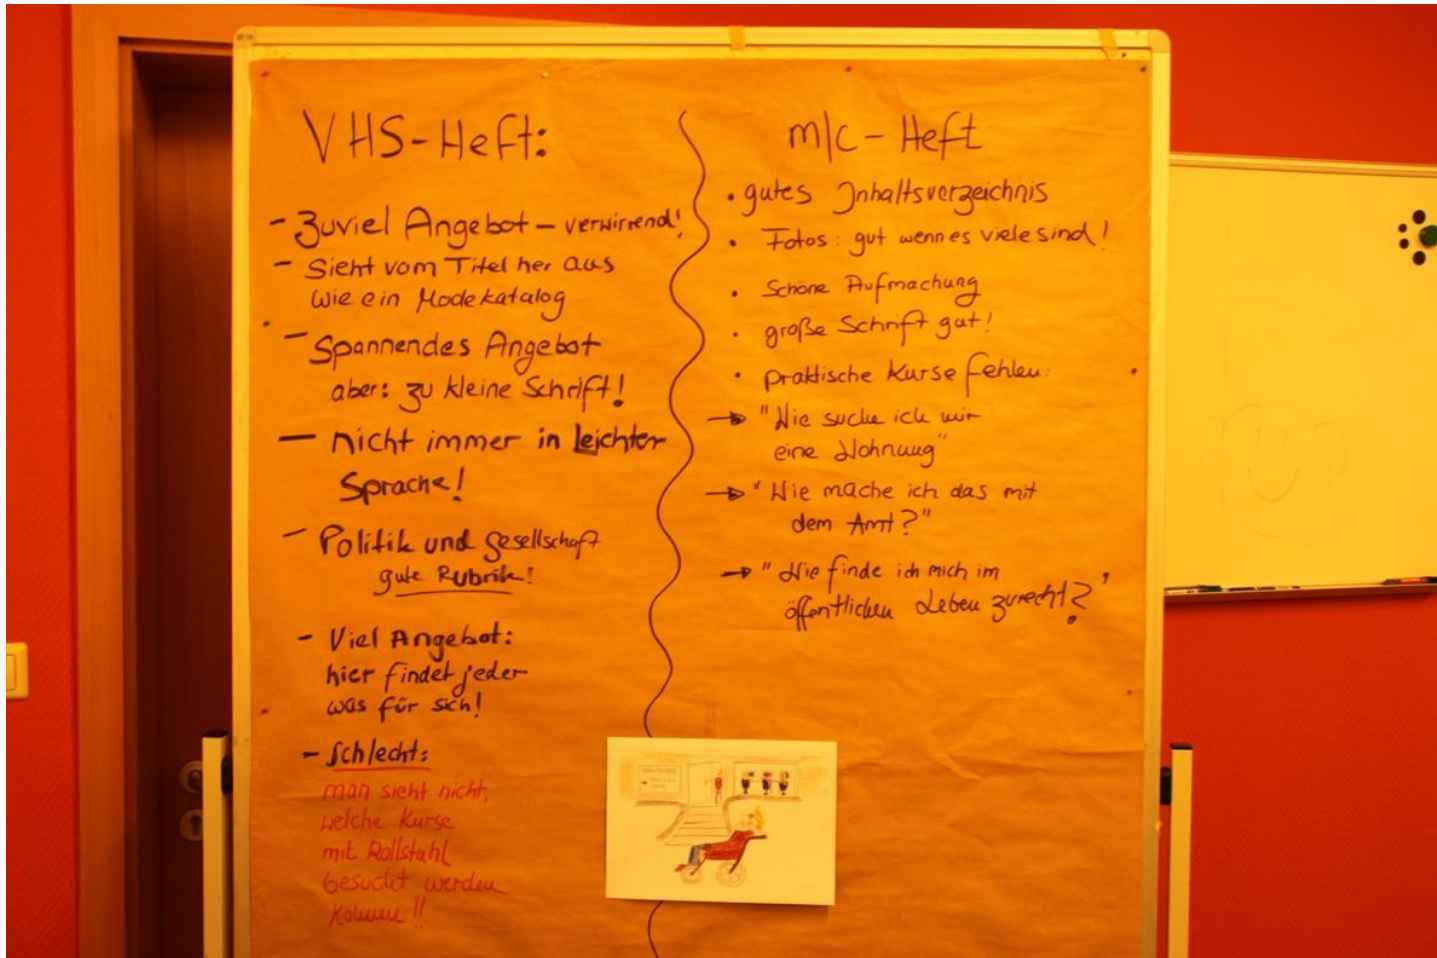 VHS-Heft:
- Zuviel Angebot – verwirrend!
- Sieht vom Titel her aus
wie ein Modekatalog
- Spannendes Angebot
aber: zu kleine Schrift!
- nicht immer in leichter
Sprache!
- Politik und Gesellschaft
gute Rubrik!
- Viel Angebot:
hier findet jeder
was für sich!
- Schlecht:
man sieht nicht,
welche Kurse
mit Rollstuhl
besucht werden
können!!
m/c - Heft
• gutes Inhaltsverzeichnis
• Fotos: gut wenn es viele sind!
• Schöne Aufmachung
• große Schrift gut!
• praktische Kurse fehlen:
→ "Wie suche ich mir
eine Wohnung"
→ "Wie mache ich das mit
dem Amt?"
→ "Wie finde ich mich im
öffentlichen Leben zurecht?"